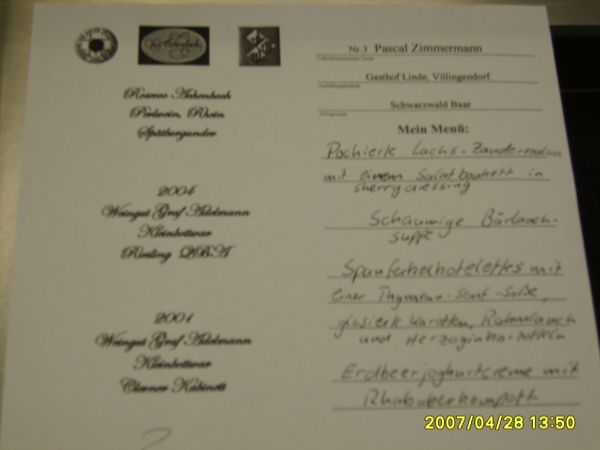 Rosecco Achenbach
Perlwein, Rhein
Spätburgunder
2004
Weingut Graf Adelmann
Kleinbottwar
Riesling QBA
2001
Weingut Graf Adelmann
Kleinbottwar
Clevner Kabinett
Nr 3 Pascal Zimmermann
Gasthof Linde, Villingendorf
Schwarzwald Baar
Mein Menü:
Pochierte Lachs-Zanderroulade
mit einem Salatboukett in
sherrydressing
Schaumige Bärlauch-
suppe
Spanferkelkotelettes mit
einer Thymian-Senf-Soße,
glasierte Karotten, Rahmlauch
und Herzoginkartoffeln
Erdbeerjoghurtcreme mit
Rhabarberkompott
2007/04/28 13:50